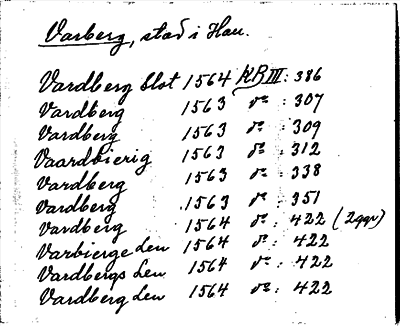 Varberg, stad i Hall.
Vardberg slot 1564 KB III: 386
Vardberg 1563 do : 307
Vardberg 1563 do : 309
Vaardbierig 1563 do : 312
Vardberg 1563 do : 338
Vardberg 1563 do : 351
Vardberg 1564 do : 422 (2ggr)
Varbierge Len 1564 do : 422
Vardbergs Len 1564 do : 422
Vardberg Len 1564 do : 422